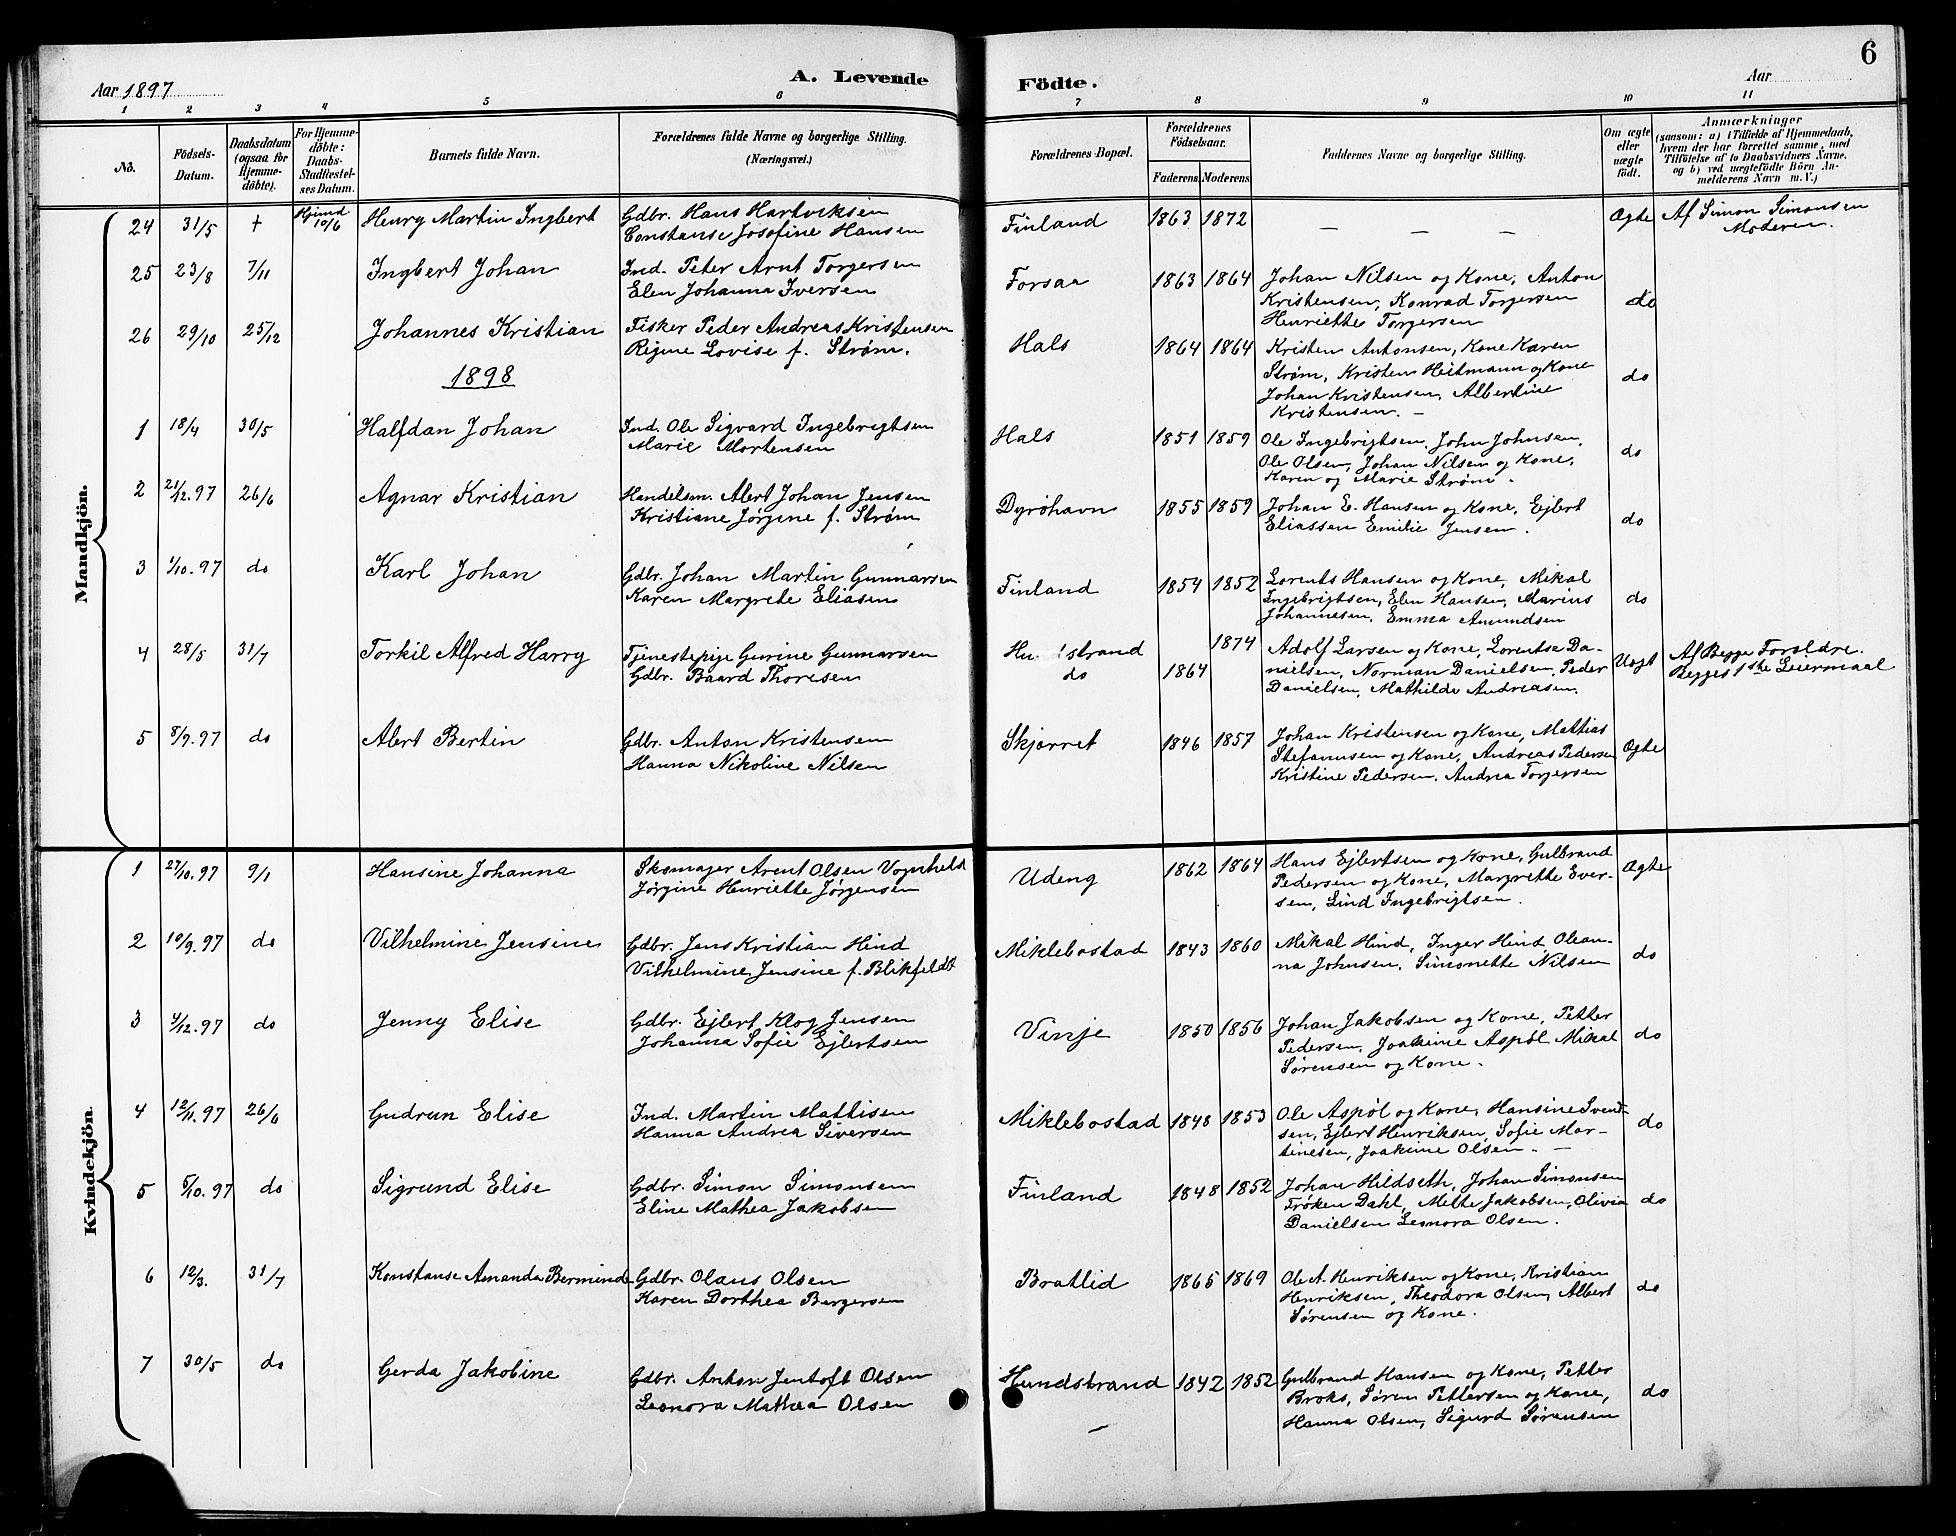 6
Aar 1897
A. Levende
Födte.
Aar
1 2 3 4 5 6 7 8 9 10 11
No.
Födsels-Datum.
Daabsdatum (ogsaa for Hjemmedöbte).
For Hjemmedöbte: Daabs-Stadfæstelses Datum.
Barnets fulde Navn.
Forældrenes fulde Navne og borgerlige Stilling. (Næringsvei.)
Forældrenes Bopæl.
Forældrenes Födselsaar.
Faderens Moderens
Faddernes Navne og borgerlige Stilling.
Om ægte eller uægte födt.
Anmærkninger (saasom: a) i Tilfælde af Hjemmedaab, hvem der har forrettet samme, med Tilföielse af to Daabsvidners Navne, og b) ved uægtefödte Börn Anmelderens Navn m. V.)
Mandkjön.
24 31/5 + Hjemd 10/6 Henry Martin Ingbert Gdbr. Hans Hartviksen Finland 1863 1872 — — — Ægte Af Simon Simonsen
Constanse Josofine Hansen Moderen.
25 23/8 7/11 Ingbert Johan Ind. Peter Arnt Torgersen Forsaa 1863 1864 Johan Nilsen og Kone, Anton
Elen Johanna Iversen Kristensen, Konrad Torgersen do
Henriette Torgersen
26 29/10 25/12 Johannes Kristian Fisker Peder Andreas Kristensen Hals 1864 1864 Kristen Antonsen, Kone Karen
Regine Lovise f. Strøm. Strøm, Kristen Heitmann og Kone do
1898 Johan Kristensen, Albertine
Kristensen. —
1 18/4 30/5 Halfdan Johan Ind. Ole Sigvard Ingebrigtsen Hals 1851 1859 Ole Ingebrigtsen, John Johnsen,
Marie Mortensen Ole Olsen, Johan Nilsen og Kone, do
Karen og Marie Strøm.
2 21/12.97 26/6 Agnar Kristian Handelsm. Alert Johan Jensen Dyröhavn 1855 1859 Johan E. Hansen og Kone, Ejlert
Kristiane Jørgine f. Strøm Eliassen Emilie Jensen. do
3 1/10.97 do Karl Johan Gdbr. Johan Martin Gunnarsen Finland 1854 1852 Lorents Hansen og Kone, Mikal
Karen Margrete Eliasen Ingebrigtsen, Elen Hansen, Marius do
Johannesen, Emma Amundsen
4 28/5 31/7 Torkil Alfred Harry Tjenestepige Gurine Gunnarsen Hu dstrand 1874 Adolf Larsen og Kone, Lorentse Da-
Gdbr. Baard Thoresen do 1864 nielsen, Norman Danielsen, Peder Uægt Af Begge Foraldre.
Danielsen, Mathilde Andreasen. Begges 1ste Leiermaal
5 8/9.97 do Alert Bertin Gdbr. Anton Kristensen Skjørret 1846 1857 Johan Kristensen og Kone, Mattias
Hanna Nikoline Nilsen Stefanusen og Kone, Andreas Pedersen Ægte
Kristine Pedersen, Andrea Torgersen
Kvindekjön.
1 27/10.97 9/1 Hansine Johanna Skomager Arnt Olsen Udeng 1862 1864 Hans Ejlertsen og Kone, Gulbrand Ægte
Jørgine Henriette Jørgensen Pedersen og Kone, Margrette Ever-
sen, Lind Ingebrigtsen.
2 10/9.97 do Vilhelmine Jensine Gdbr. Jens Kristian Hind Miklebostad 1843 1860 Mikal Hind, Inger Hind, Olean-
Vilhelmine Jensine f. Blikfeldt na Johnsen, Simonette Nilsen do
3 4/12.97 do Jenny Elise Gdbr. Ejlert Klog Jensen Vinje 1850 1856 Johan Jakobsen og Kone, Petter
Johanna Sofie Ejlertsen Pedersen, Joakime Aspöl Mikal do
Sørensen og Kone.
4 12/11.97 26/6 Gudrun Elise Ind. Martin Mathisen Miklebostad 1848 1853 Ole Aspöl og Kone, Hansine Svend-
Hanna Andrea Siversen sen, Ejlert Henriksen, Sofie Mar- do
tinesen, Joakime Olsen. —
5 5/10.97 do Sigrund Elise Gdbr. Simon Simonsen Finland 1848 1852 Johan Hildseth, Johan Simonsen
Eline Mathea Jakobsen Frøken Dahl, Mette Jakobsen, Olivia do
Danielsen Leonora Olsen.
6 12/3. 31/7 Konstanse Amanda Berminde Gdbr. Olaus Olsen Bratlid 1865 1869 Ole A. Henriksen og Kone, Kristian
Karen Dorthea Bergersen Henriksen, Theodora Olsen, Albert do
Sørensen og Kone.
7 30/5 do Gerda Jakobine Gdbr. Anton Jentoft Olsen Hundstrand 1842 1852 Gulbrand Hansen og Kone, Petter
Leonora Mathea Olsen Broks, Søren Pettersen og Kone, do
— Hanna Olsen, Sigurd Sørensen